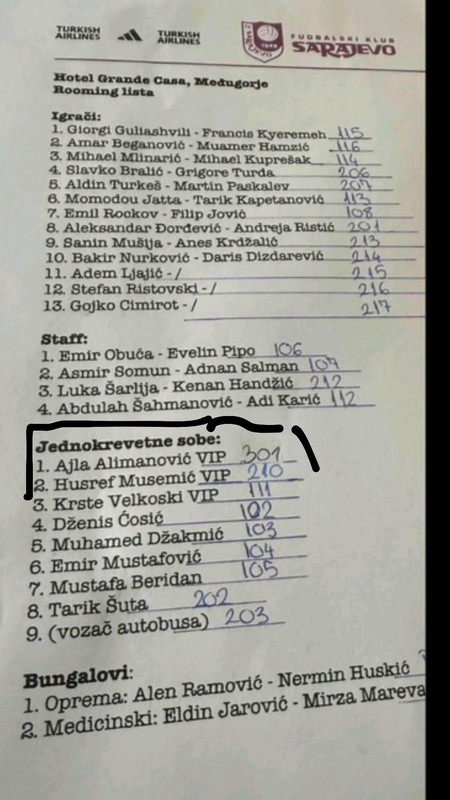 TURKISH AIRLINES
TURKISH AIRLINES
FUDBALSKI KLUB
SARAJEVO
Hotel Grande Casa, Međugorje
Rooming lista
Igrači:
1. Giorgi Guliashvili - Francis Kyeremeh 115
2. Amar Beganović - Muamer Hamzić 116
3. Mihael Mlinarić - Mihael Kuprešak 114
4. Slavko Bralić - Grigore Turda 206
5. Aldin Turkeš - Martin Paskalev 207
6. Momodou Jatta - Tarik Kapetanović 113
7. Emil Rockov - Filip Jović 108
8. Aleksandar Đorđević - Andreja Ristić 201
9. Sanin Mušija - Anes Krdžalić 213
10. Bakir Nurković - Daris Dizdarević 214
11. Adem Ljajić - / 215
12. Stefan Ristovski - / 216
13. Gojko Cimirot - / 217
Staff:
1. Emir Obuća - Evelin Pipo 106
2. Asmir Somun - Adnan Salman 107
3. Luka Šarlija - Kenan Handžić 212
4. Abdulah Šahmanović - Adi Karić 112
Jednokrevetne sobe:
1. Ajla Alimanović VIP 301
2. Husref Musemić VIP 210
3. Krste Velkoski VIP 111
4. Dženis Ćosić 102
5. Muhamed Džakmić 103
6. Emir Mustafović 104
7. Mustafa Beridan 105
8. Tarik Šuta 202
9. (vozač autobusa) 203
Bungalovi:
1. Oprema: Alen Ramović - Nermin Huskić
2. Medicinski: Eldin Jarović - Mirza Mareva